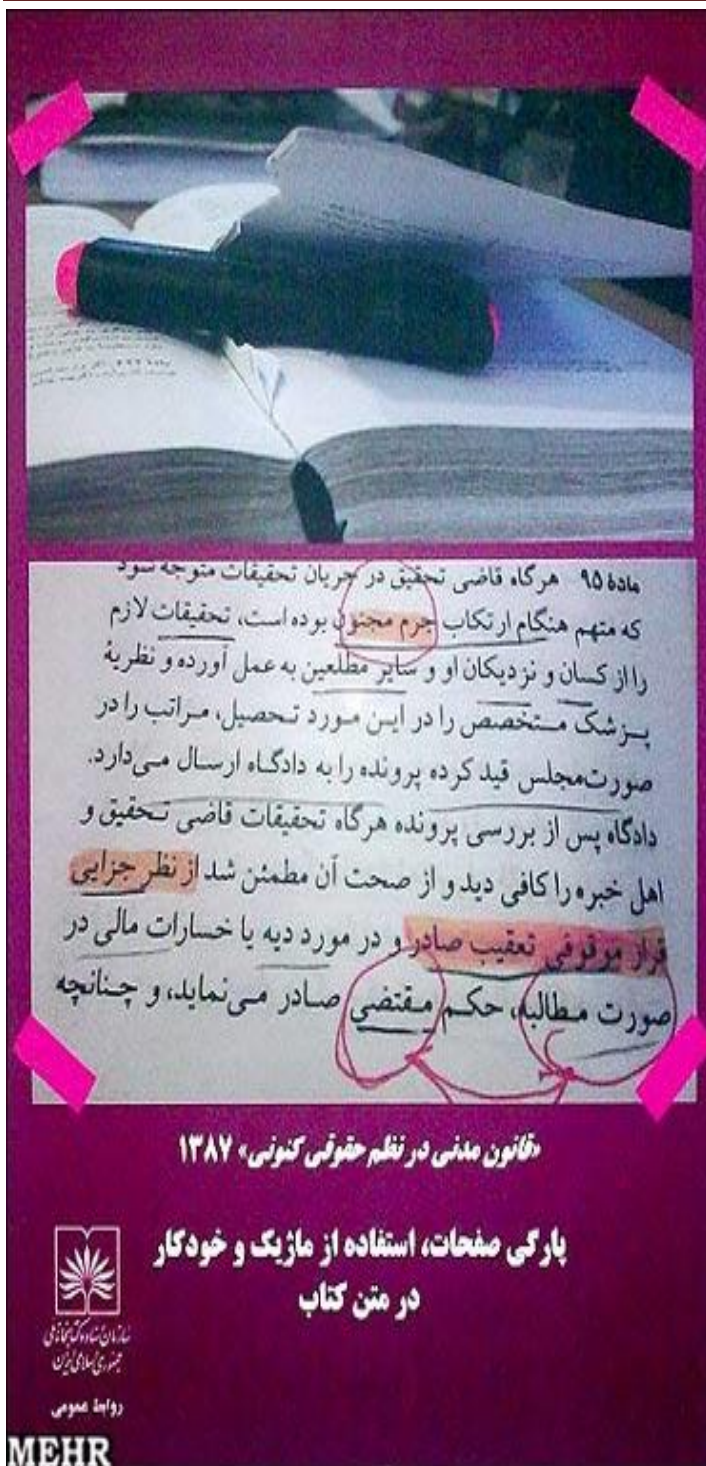 مادهٔ ۹۵ هرگاه قاضی تحقیق در جریان تحقیقات متوجه شود
که متهم هنگام ارتکاب جرم مجنون بوده است، تحقیقات لازم
را از کسان و نزدیکان او و سایر مطلعین به عمل آورده و نظریهٔ
پزشک متخصص را در این مورد تحصیل، مراتب را در
صورت‌مجلس قید کرده پرونده را به دادگاه ارسال می‌دارد.
دادگاه پس از بررسی پرونده هرگاه تحقیقات قاضی تحقیق و
اهل خبره را کافی دید و از صحت آن مطمئن شد از نظر جزایی
قرار موقوفی تعقیب صادر و در مورد دیه یا خسارات مالی در
صورت مطالبه، حکم مقتضی صادر می‌نماید، و چنانچه
«قانون مدنی در نظم حقوقی کنونی» ۱۳۸۷
پارگی صفحات، استفاده از ماژیک و خودکار
در متن کتاب
سازمان اسناد و کتابخانه ملی
جمهوری اسلامی ایران
روابط عمومی
MEHR